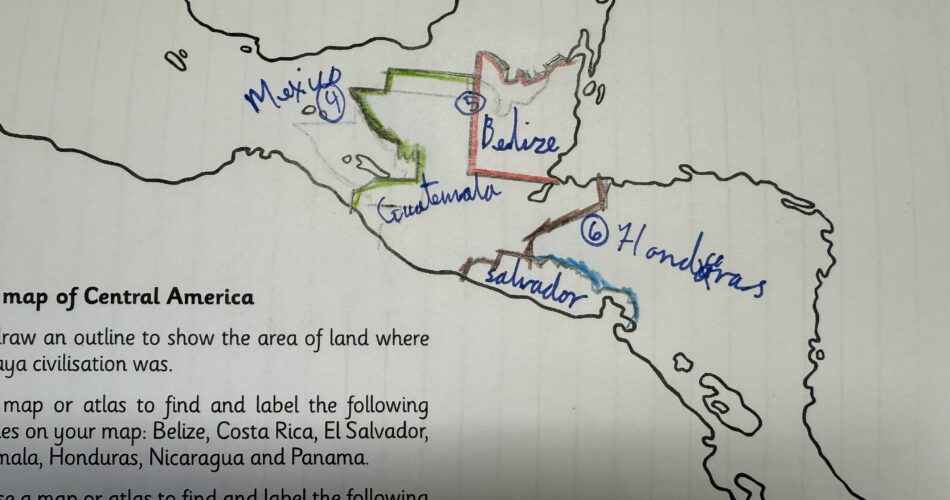 Mexico
4
5
Belize
Guatemala
6 Honduras
Salvador
map of Central America
raw an outline to show the area of land where
aya civilisation was.
map or atlas to find and label the following
es on your map: Belize, Costa Rica, El Salvador,
mala, Honduras, Nicaragua and Panama.
se a map or atlas to find and label the following